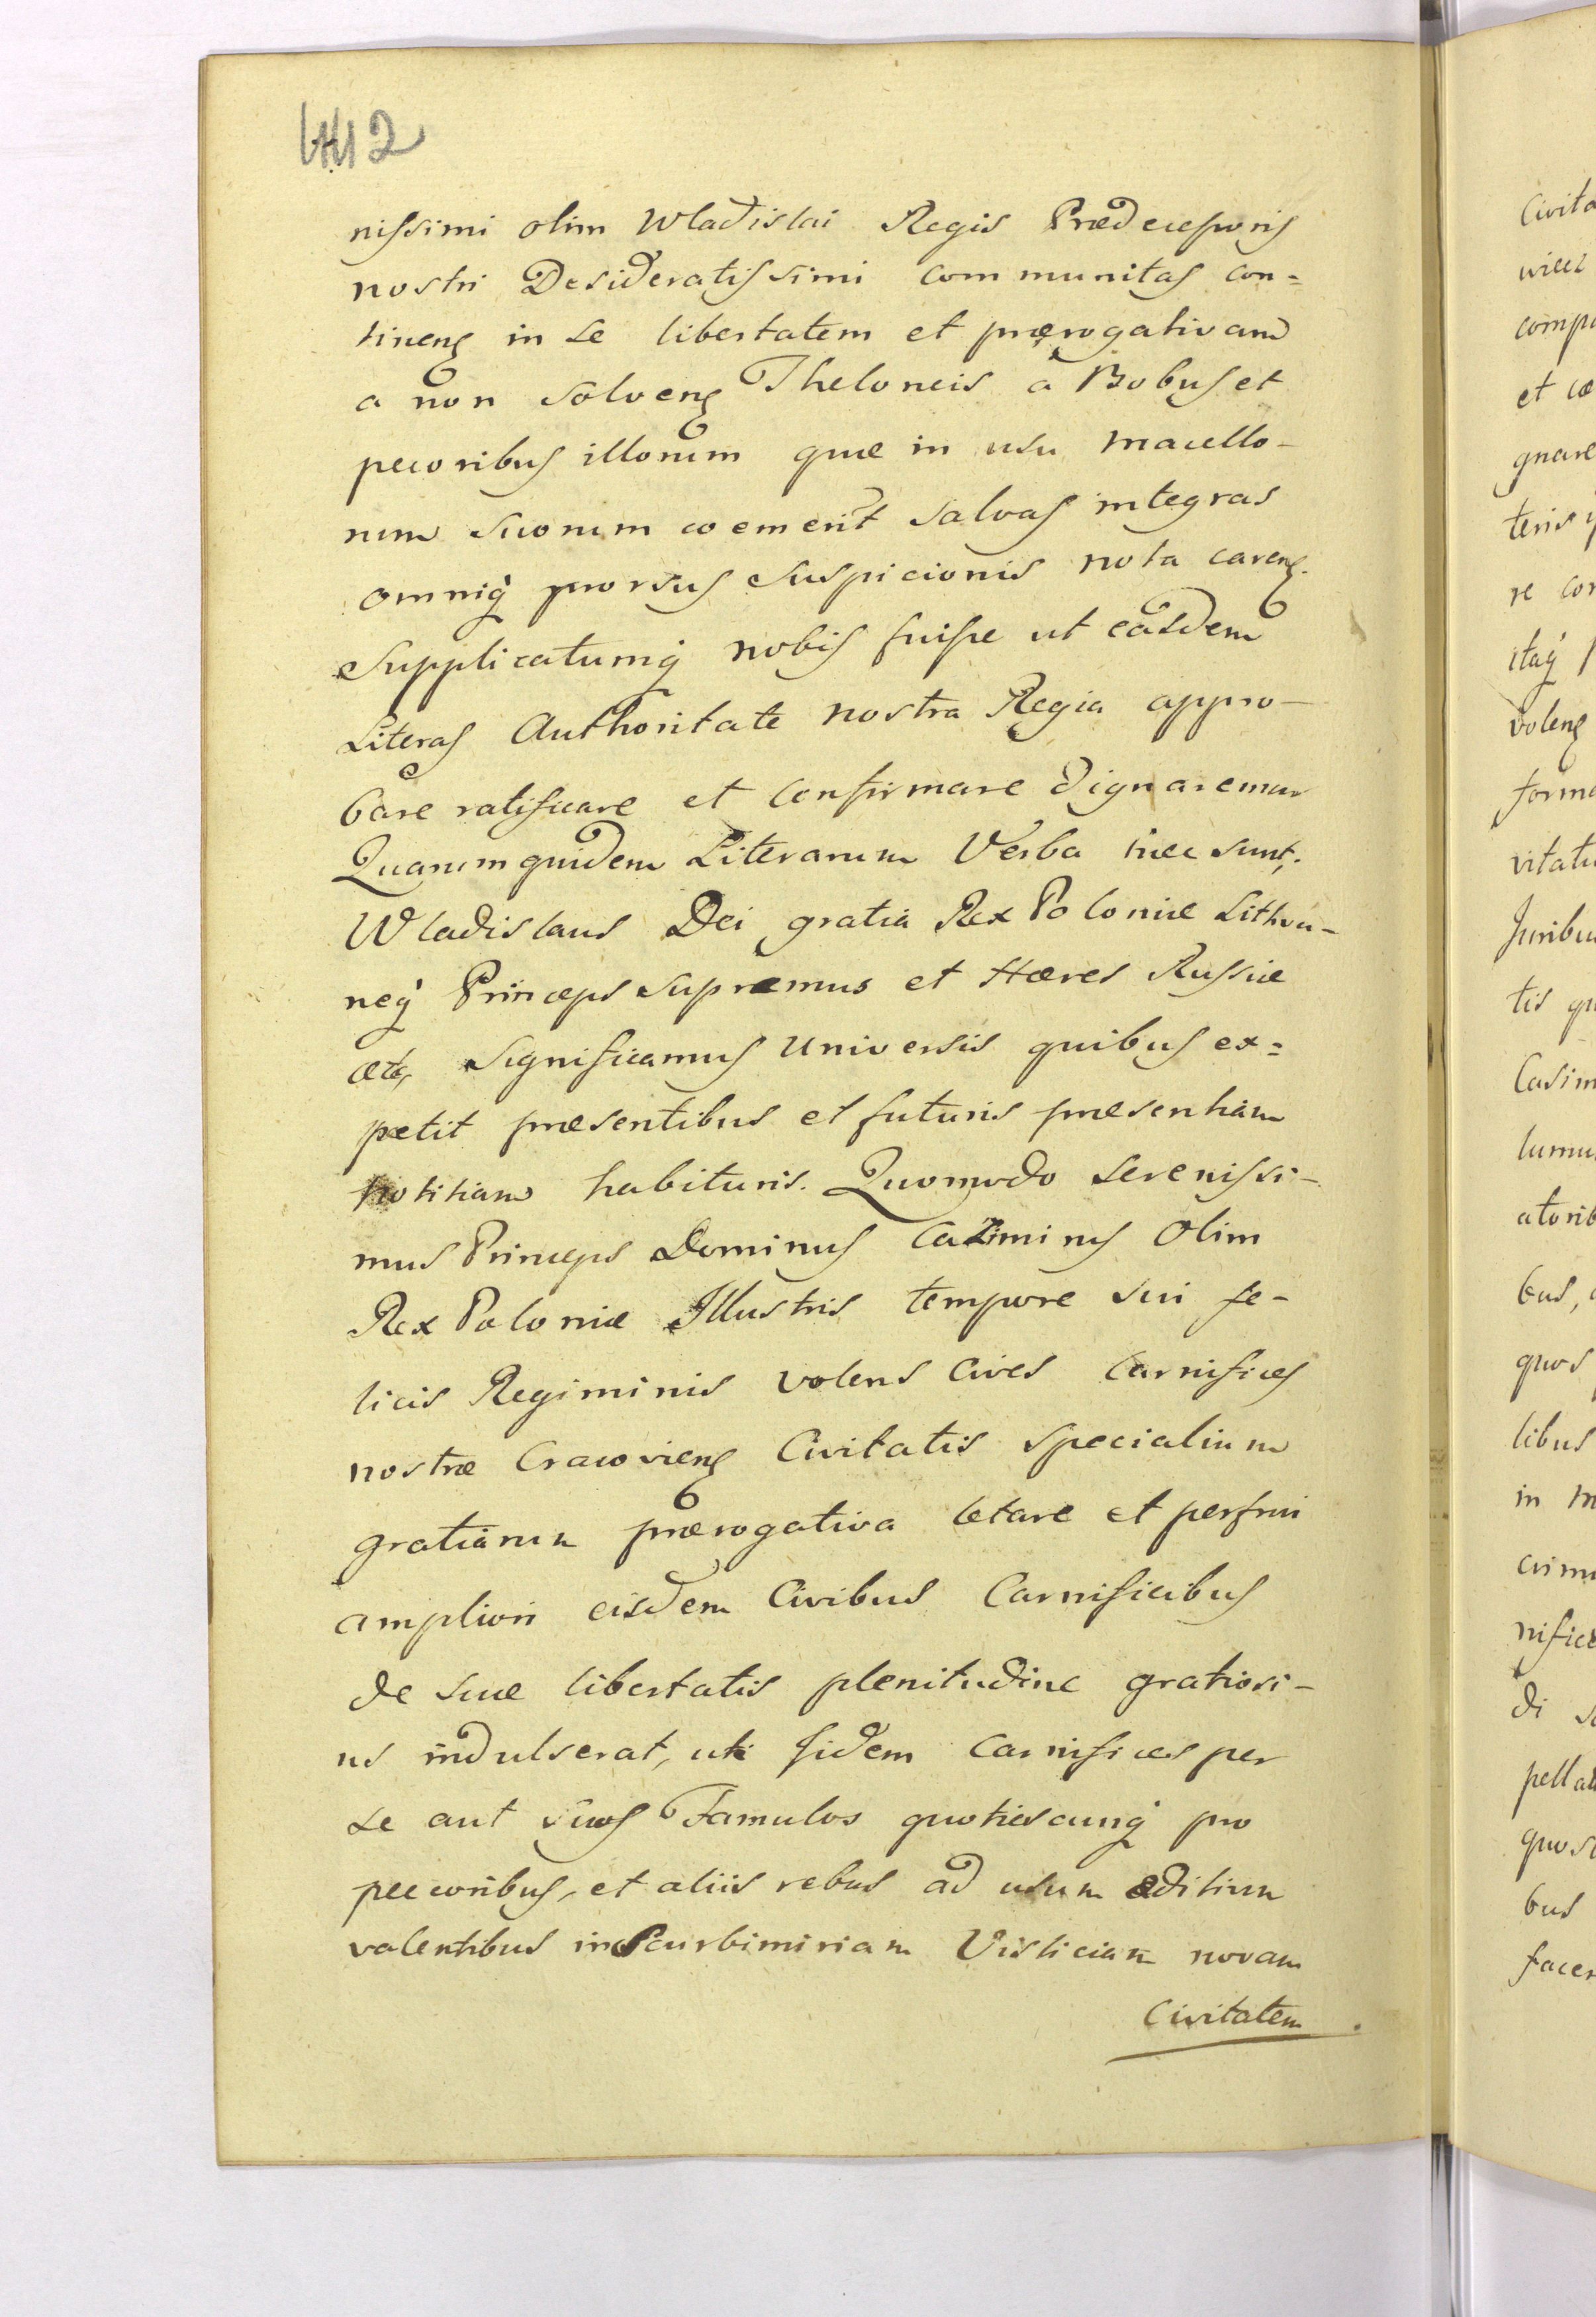 412
nissimi olim Wladislai Regis Prædecessoris
nostri Desideratissimi communitas con=
tinenʒ in se libertatem et prærogativam
a non solvenʒ Theloneis a Bobus et
pecoribus illorum quæ in usu macello-
rum suorum coemerīt salvas integras
omniq́ prorsus suspicionis nota carenʒ.
Supplicatumq́ nobis fuisse ut easdem
Literas Authoritate nostra Regia appro-
bare ratificare et confirmare dignaremur
Quarum quidem Literarum Verba hæc sunt.
Wladislaus Dei gratia Rex Poloniæ Lithva-
neq́ Princeps supremus et Hæres Russiæ
ætc, significamus Universis quibus ex=
petit præsentibus et futuris præsentiam
notitiam habituris. Quomodo serenissi-
mus Princeps Dominus Cazimirus Olim
Rex Poloniæ Illustris tempore sui fe-
licis Regiminis volens Cives Carnifices
nostræ Cracovienʒ Civitatis specialium
gratiarum prærogativa letare et perfrui
ampliori eisdem Civibus Carnificibus
de suæ libertatis plenitudine gratiosi-
us indulserat, uti fidem Carnifices per
se aut suos Famulos quotiescunq́ pro
peccoribus, et aliis rebus ad usum editium
valentibus in Scurbimiriam Visliciam novam
Civitatem
Civita
compa
et cæ
gnare
teris
re con
itaq́
volenʒ
forma
vitatu
Juribu
tis qu
Casim
lumu
atorib
bus,
quos
libus
in m
nifice
di
pella
quos
bus
facer